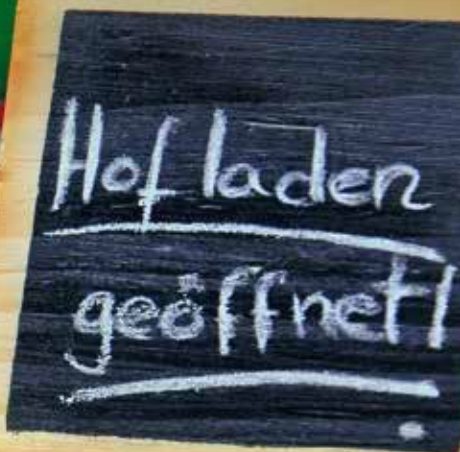 Hofladen
geöffnet!